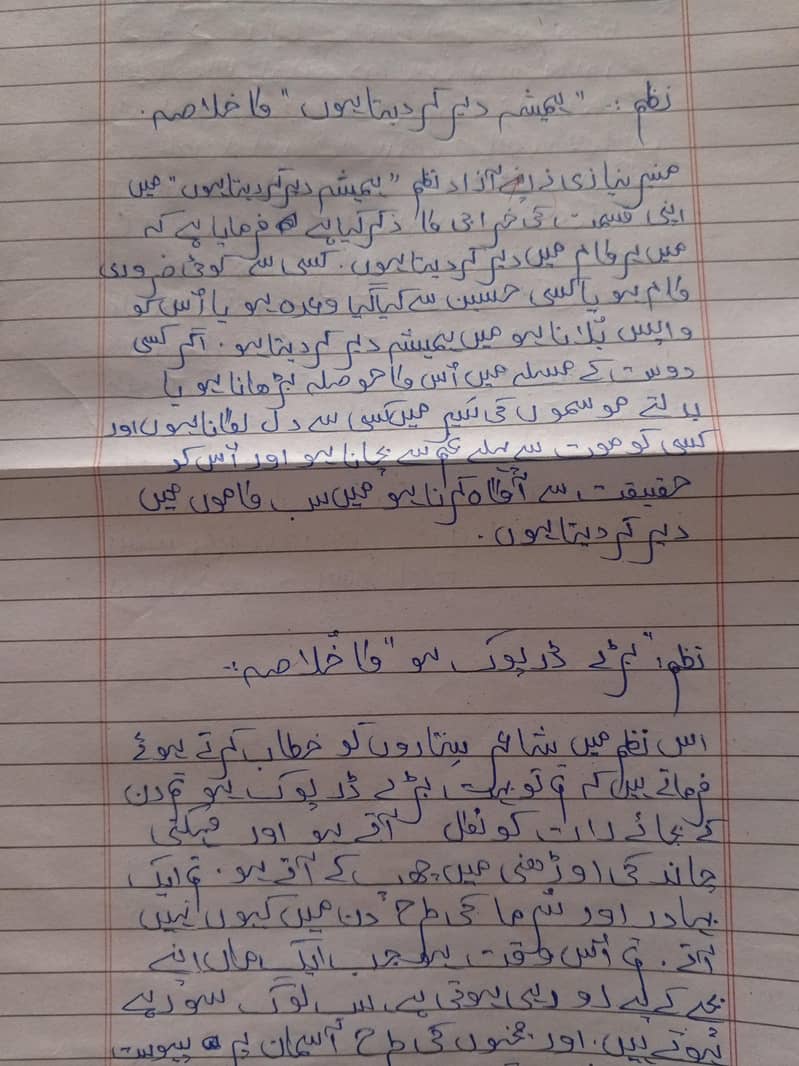 نظم:۔ "ہمیشہ دیر کر دیتا ہوں" کا خلاصہ۔
منیر نیازی نے اپنے آزاد نظم "ہمیشہ دیر کر دیتا ہوں" میں
اپنی قسمت کی خرابی کا ذکر کیا ہے فرمایا ہے کہ
میں ہر کام میں دیر کر دیتا ہوں۔ کسی سے کوئی ضروری
کام ہو یا کسی حسین سے کیا گیا وعدہ ہو یا اُس کو
واپس بُلانا ہو میں ہمیشہ دیر کر دیتا ہو۔ اگر کسی
دوست کے مسلہ میں اُس کا حوصلہ بڑھانا ہو یا
بدلتے موسموں کی سَیر میں کسی سے دل لگانا ہوں اور
کسی کو موت سے پہلے غم سے بچانا ہو اور اُس کو
حقیقت سے آگاہ کرنا ہو میں سب کاموں میں
دیر کر دیتا ہوں۔
نظم: "بڑے ڈرپوک ہو" کا خُلاصہ:۔
اس نظم میں شاعر سِتاروں کو خطاب کرتے ہوئے
فرماتے ہیں کہ تم تو بہت بڑے ڈرپوک ہو تم دن
کے بجائے رات کو نکل آتے ہو اور
چاند کی اوڑھنی میں چھپ کے آتے ہو۔ تم ایک
بہادر اور سُرما کی طرح دن میں کیوں نہیں
آتے۔ تم اُس وقت ہو جب ایک ماں اپنے
بچے کے لیے رو رہی ہوتی ہے سب لوگ سو رہے
ہوتے ہیں۔ اور کی طرح آسمان پر پیوست